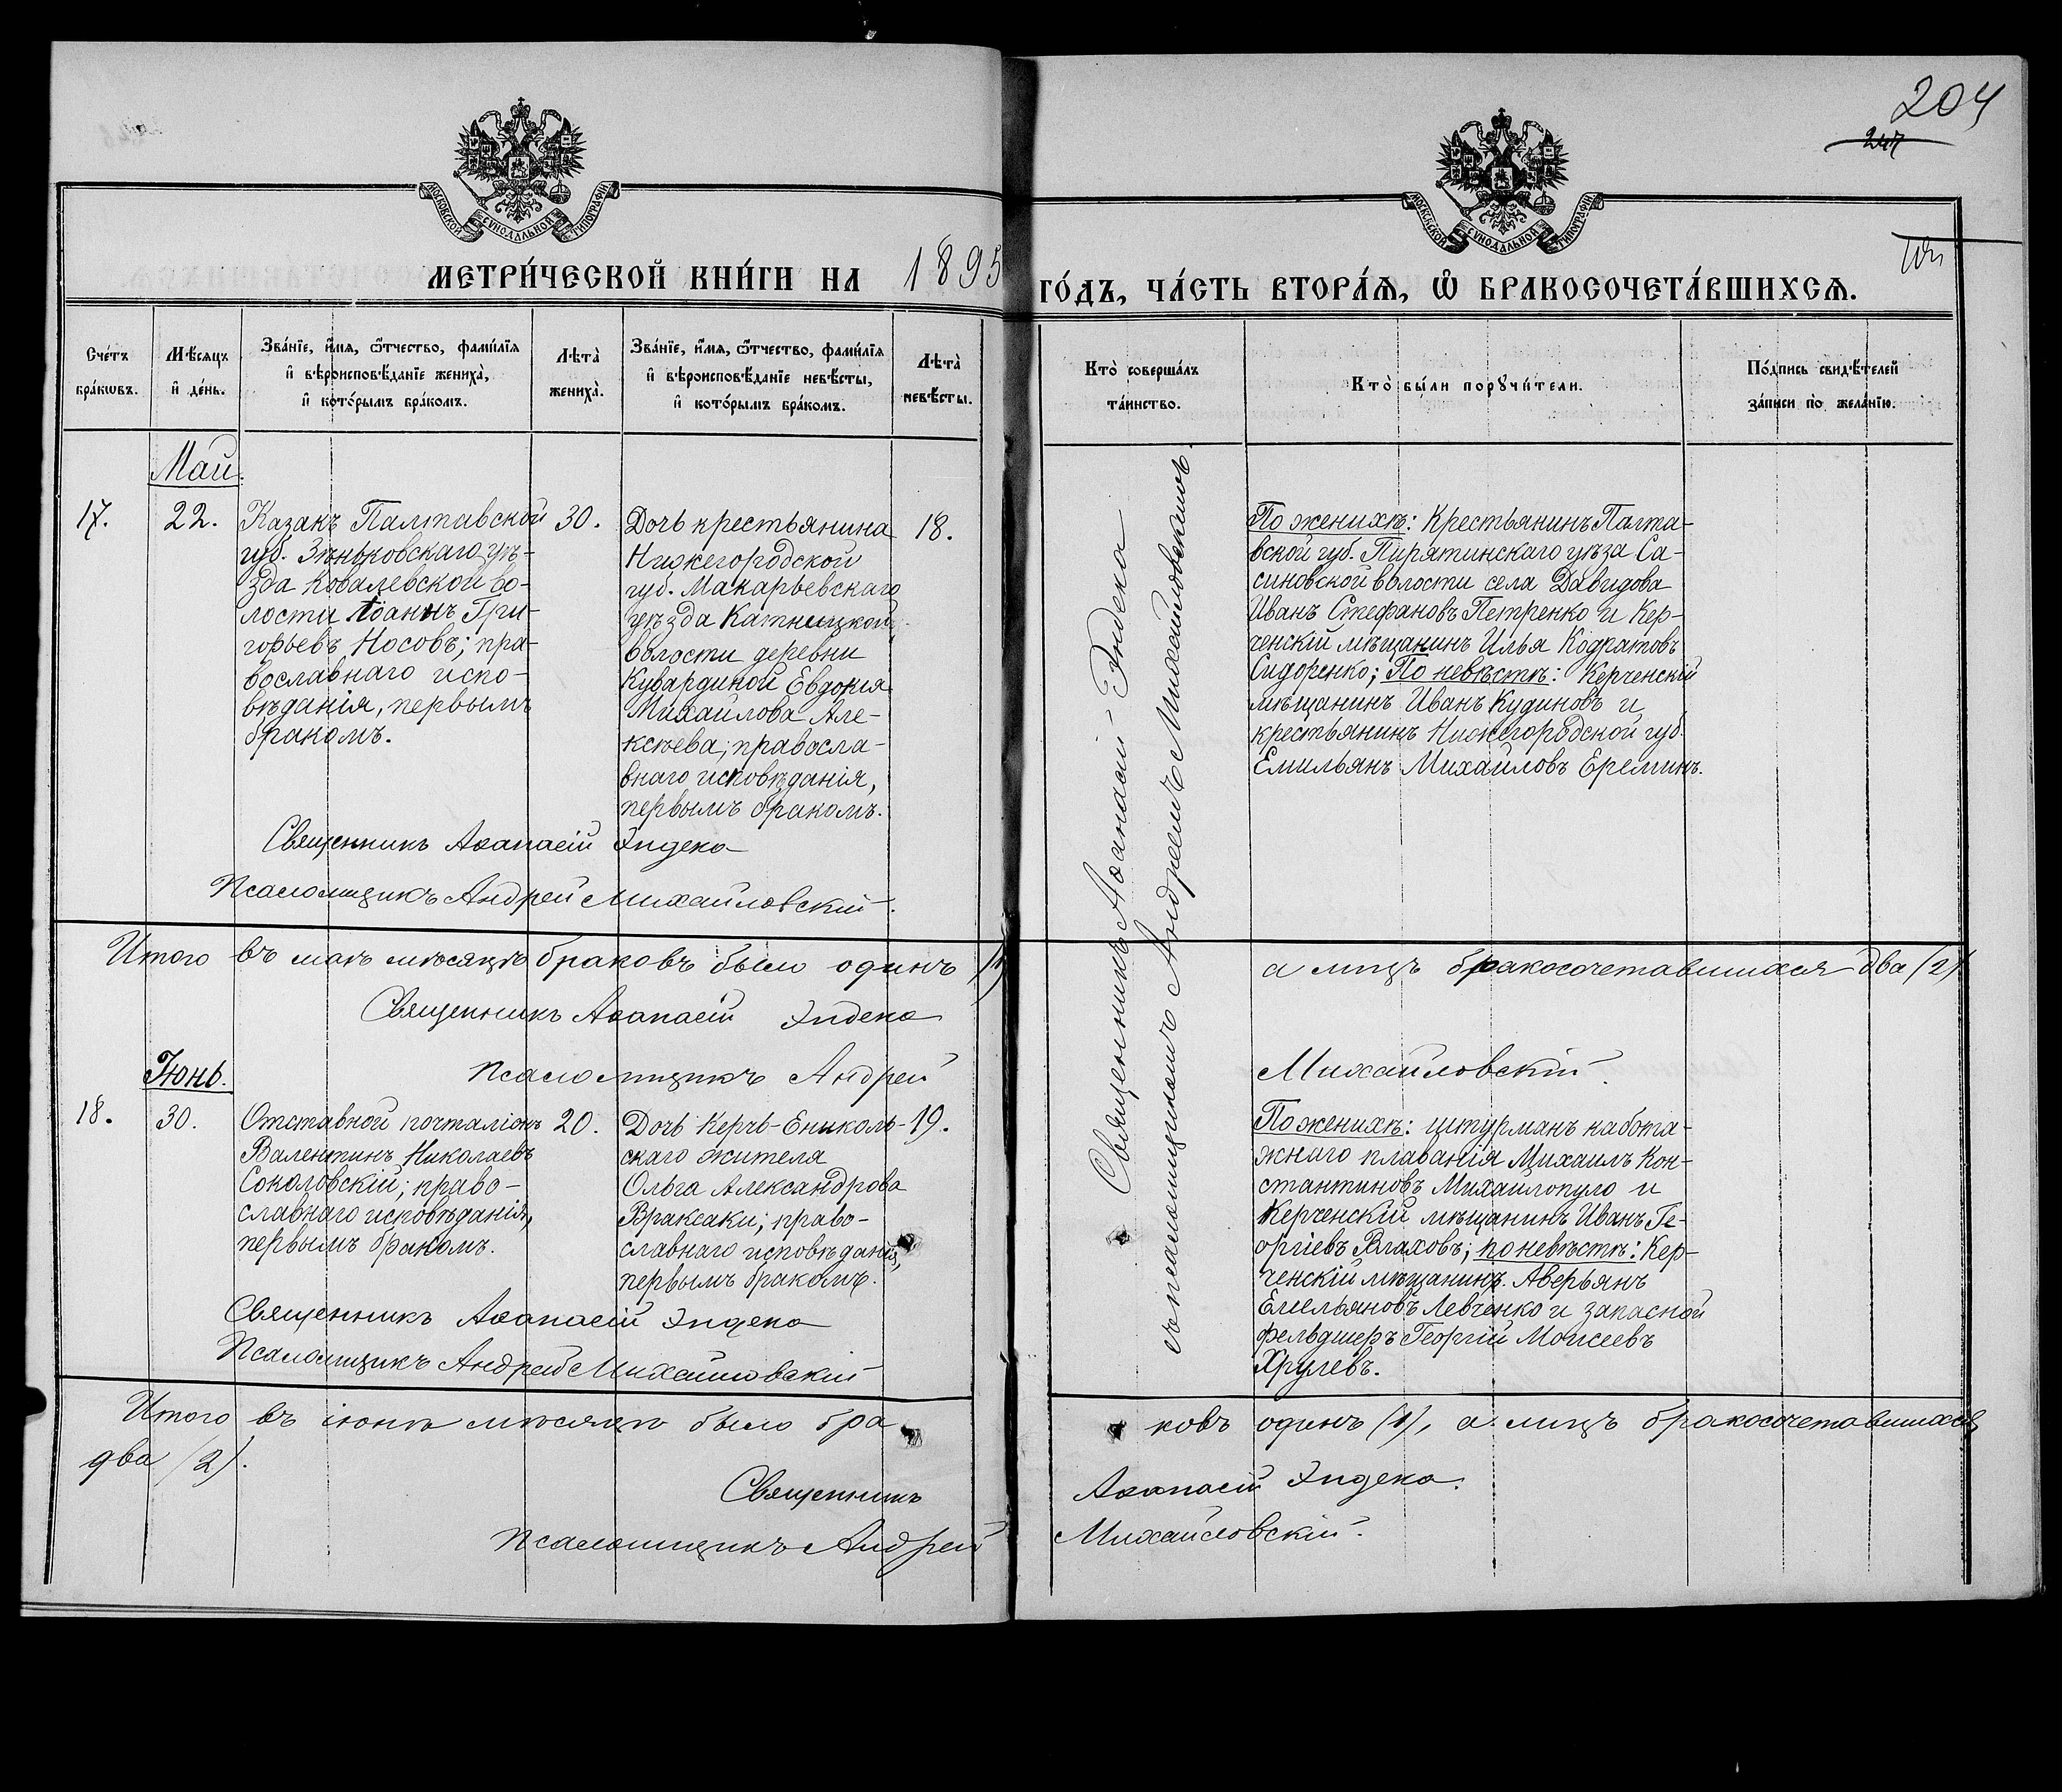 204
247
МОСКОВСКОЙ СѴНОДАЛЬНОЙ ТИПОГРАФІИ
МОСКОВСКОЙ СѴНОДАЛЬНОЙ ТИПОГРАФІИ
МЕТРИ́ЧЕСКОЙ КНИ́ГИ НА 1895
ГО́ДЪ, ЧА́СТЬ ВТОРА́Ѧ, Ѽ БРАКОСОЧЕТА́ВШИХСѦ.
Сче́тъ
бра́кѡвъ.
Мѣ́сяцъ
и҆ де́нь.
Зва́нїе, и҆́мя, ѻ҆́тчество, фами́лїя
и҆ вѣроисповѣ́данїе жениха̀,
и҆ кото́рымъ бра́комъ.
Лѣта̀
жениха̀.
Зва́нїе, и҆́мя, ѻ҆́тчество, фами́лїя
и҆ вѣроисповѣ́данїе невѣ́сты,
и҆ кото́рымъ бра́комъ.
Лѣта̀
невѣ́сты.
Кто̀ соверша́лъ
та́инство.
Кто̀ бы́ли порꙋчи́тели.
По́дпись свидѣ́телей
за́писи по̀ жела́нїю.
Май.
17.
22.
Казакъ Палтавской
губ. Зѣньковскаго уѣ-
зда Ковалевской во-
лости Іоаннъ Гри-
горьевъ Носовъ; пра-
вославнаго испо-
вѣданія, первымъ
бракомъ.
30.
Дочь крестьянина
Нижегородской
губ. Макарьевскаго
уѣзда Катницкой
волости деревни
Кувардиной Евдокія
Михаилова Але-
ксѣева; правосла-
внаго исповѣданія,
первымъ бракомъ.
18.
Священникъ Аѳанасій Эндека
Псаломщикъ Андрей Михайловскій.
Священникъ Аѳанасій Эндека
съ псаломщикомъ Андреемъ Михайловскимъ.
По женихѣ: Крестьянинъ Палта-
вской губ. Пирятинскаго уѣза Са-
синовской волости села Давидова
Иванъ Стефановъ Петренко и Кер-
ченскій мѣщанинъ Илья Кодратовъ
Сидоренко; По невѣстѣ: Керченскій
мѣщанинъ Иванъ Кудиновъ и
крестьянинъ Нижегородской губ.
Емильянъ Михаиловъ Ереминъ.
Итого въ маѣ мѣсяцѣ браковъ было одинъ /1/
а лицъ бракосочетавшихся два /2/
Священникъ Аѳанасій Эндека
Псаломщикъ Андрей
Михайловскій.
Іюнь.
18.
30.
Отставной почталіонъ
Валентинъ Николаевъ
Соколовскій; право-
славнаго исповѣданія,
первымъ бракомъ.
20.
Дочь Керчь-Ениколь-
скаго жителя
Ольга Александрова
Враксаки; право-
славнаго исповѣданія,
первымъ бракомъ.
19.
Священникъ Аѳанасій Эндека
Псаломщикъ Андрей Михайловскій
По женихѣ: штурманъ каботa-
жнаго плаванія Михаилъ Кон-
стантиновъ Михаилопуло и
Керченскій мѣщанинъ Иванъ Ге-
оргіевъ Влаховъ; по невѣстѣ: Кер-
ченскій мѣщанинъ Аверьянъ
Емельяновъ Левченко и запасной
фельдшеръ Георгій Моисеевъ
Хрулевъ.
Итого въ іюнѣ мѣсяцѣ было бра
ковъ одинъ (1), а лицъ бракосочетавшихся
два /2/.
Священникъ
Аѳанасій Эндека.
Псаломщикъ Андрей
Михайловскій.